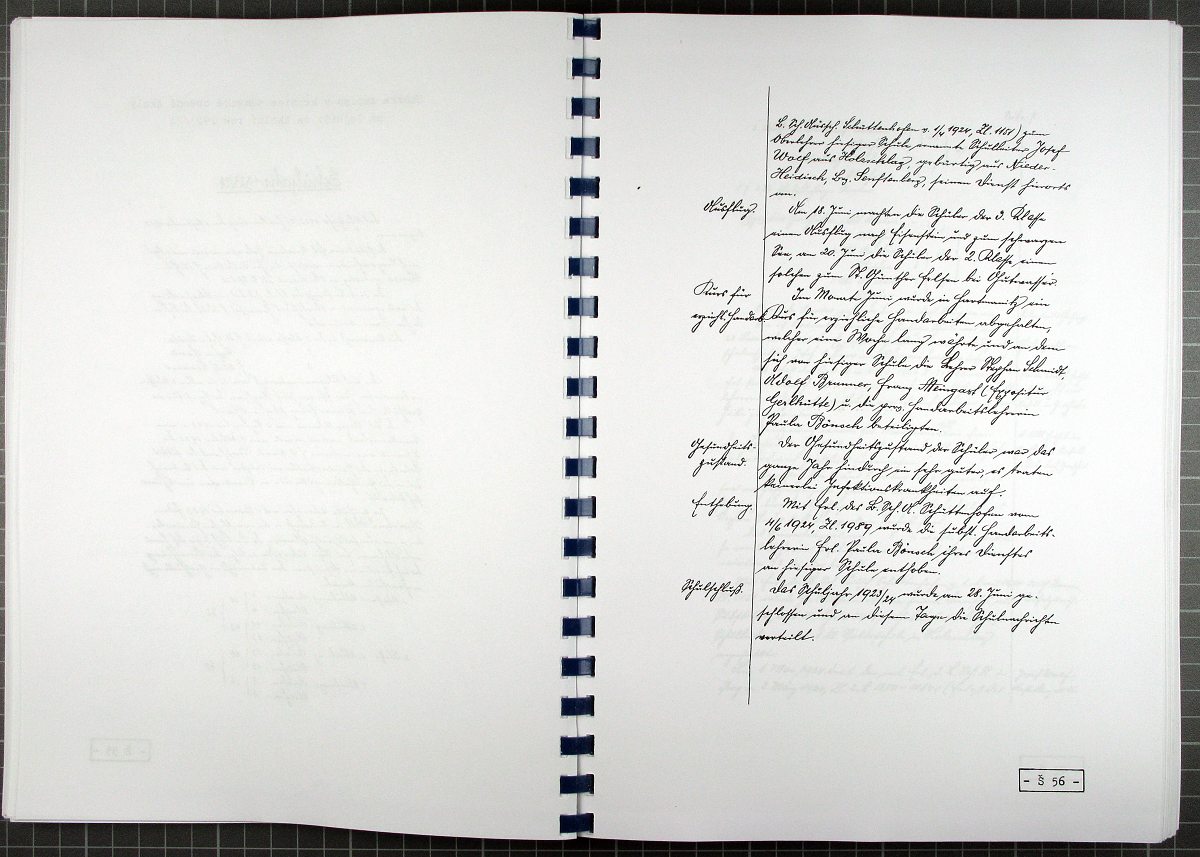 B. Sch. Aussch. Schüttenhofen v. 1/4 1924, Zl. 1151) zum
Oberlehrer hiesiger Schule ernannte Schulleiter Josef
Wolf aus Holzschlag, gebürtig aus Nieder-
Heidisch, Bz. Senftenberg, seinen Dienst hierorts
an.
Ausflug.
Am 18. Juni machten die Schüler der 3. Klasse
einen Ausflug nach Eisenstein und zum schwarzen
See, am 20. Juni die Schüler der 2. Klasse einen
solchen zum St. Günther Felsen bei Gutwasser.
Kurs für
erziehl. Handarb.
Im Monate Juni wurde in Hartmanitz ein
Kurs für erziehliche Handarbeiten abgehalten,
welcher eine Woche lang währte und an dem
sich von hiesiger Schule die Lehrer Stephan Schmidt,
Adolf Brunner, Franz Weingart (Expositur
Gerlhütte) u. die prov. Handarbeitslehrerin
Paula Bönsch beteiligten.
Gesundheits-
zustand.
Der Gesundheitszustand der Schüler war das
ganze Jahr hindurch ein sehr guter, es traten
keinerlei Infektionskrankheiten auf.
Enthebung.
Mit Erl. des B. Sch. A. Schüttenhofen vom
4/6 1924, Zl. 1989 wurde die subst. Handarbeits-
lehrerin Frl. Paula Bönsch ihres Dienstes
an hiesiger Schule enthoben.
Schulschluß.
Das Schuljahr 1923/24 wurde am 28. Juni ge-
schlossen und an diesem Tage die Schulnachrichten
verteilt.
- Š 56 -